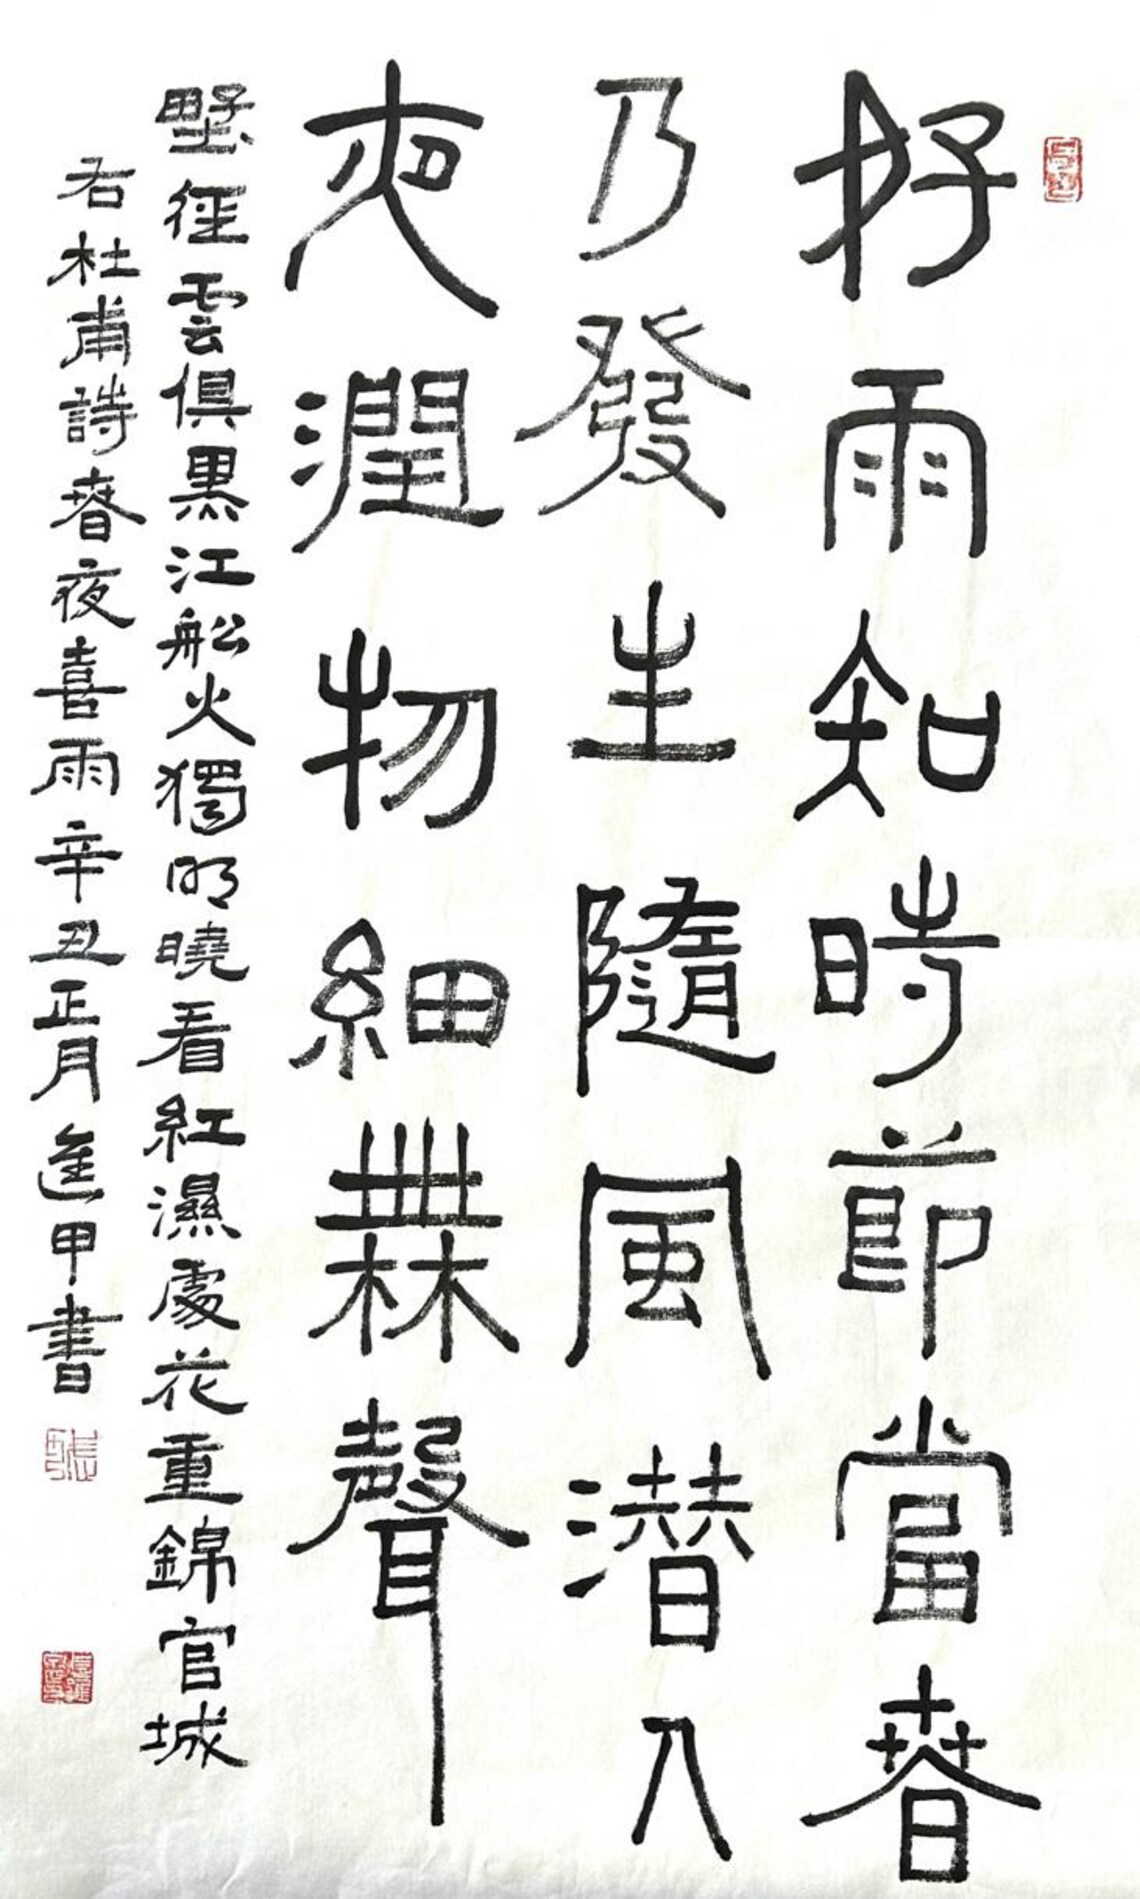 好雨知時節當春
乃發生隨風潜入
夾潤物細無聲
野徑雲俱黑江船火獨明曉看紅濕處花重錦官城
右杜甫詩春夜喜雨辛丑正月進甲書